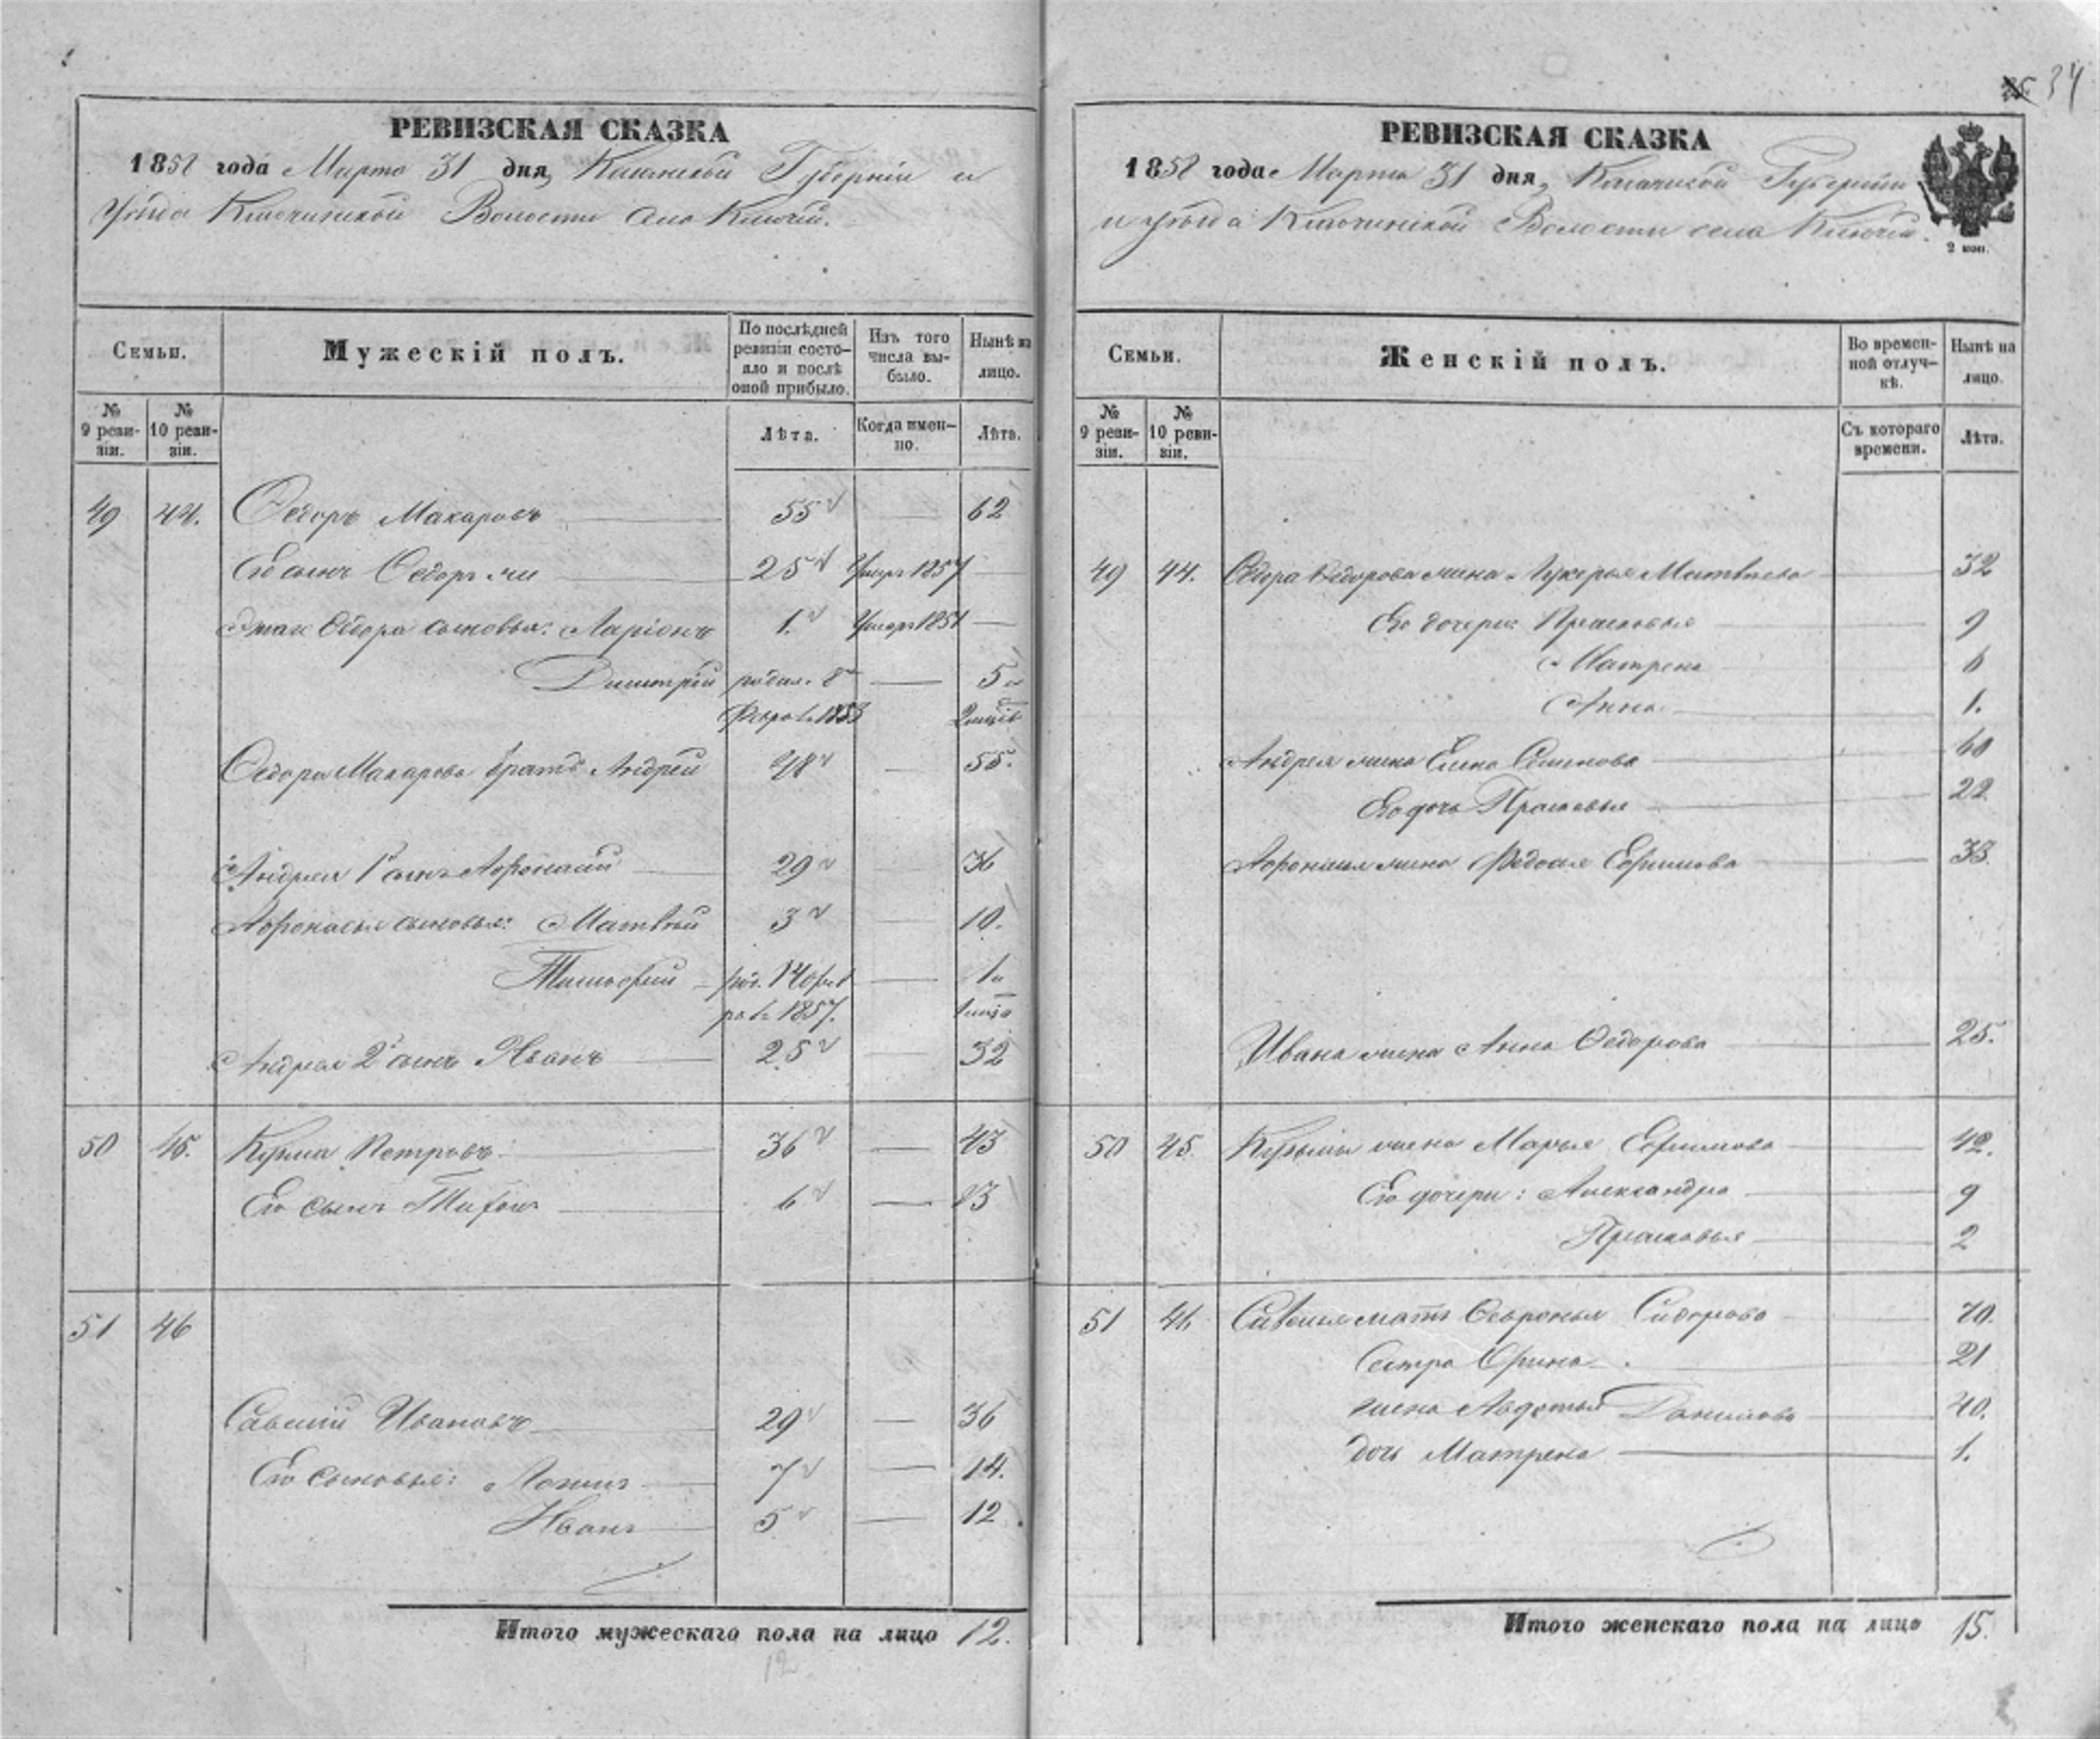 34
РЕВИЗСКАЯ СКАЗКА
1858 года Марта 31 дня, Казанской Губерніи и
уѣзда Ключинской Волости села Ключій.
Семьи.
Мужескій полъ.
По послѣдней ревизіи состояло и послѣ оной прибыло.
Изъ того числа выбыло.
Нынѣ на лицо.
№ 9 ревизіи.
№ 10 ревизіи.
Лѣта.
Когда именно.
Лѣта.
49 44. Ѳедоръ Макаровъ 55 62
Его сынъ Ѳедоръ 25 Умеръ 1857
Ѳедора сыновья: Ларіонъ 1. Умеръ 1851
Димитрій родил. 8 5
Февраля 1853 2 мѣсяц
Ѳедора Макарова братъ Андрей 48 55.
Андрея 1й сынъ Афонасій 29 36
Афонасья сыновья: Матвѣй 3 10.
Тимофей род. 14 фев 1
раля 1857. 1 мѣся
Андрея 2й сынъ Иванъ 25 32
50 45. Кузма Петровъ 36 43
Его сынъ Тихонъ 6 13
51 46
Савелій Ивановъ 29 36
Его сыновья: Логинъ 7 14.
Иванъ 5 12
Итого мужескаго пола на лицо 12.
12
РЕВИЗСКАЯ СКАЗКА
1858 года Марта 31 дня, Казанской Губерніи
и уѣзда Ключинской Волости села Ключій.
2 коп.
Семьи.
Женскій полъ.
Во временной отлучкѣ.
Нынѣ на лицо.
№ 9 ревизіи.
№ 10 ревизіи.
Съ котораго времени.
Лѣта.
49 44. Ѳедора Ѳедорова жена Лукерья Матвѣева 32
Его дочери: Прасковья 9
Матрена 6
Анна 1.
Андрея жена Елена Семенова 60
Его дочь Прасковья 22
Афонасья жена Федосья Ефимова 33
Ивана жена Анна Ѳедорова 25.
50 45 Кузьмы жена Марья Ефимова 42.
Его дочери: Александра 9
Прасковья 2
51 46 Савелья мать Ѳевронья Сидорова 70.
Сестра Орина 21
жена Авдотья Данилова 40.
дочь Матрена 1.
Итого женскаго пола на лицо 15.